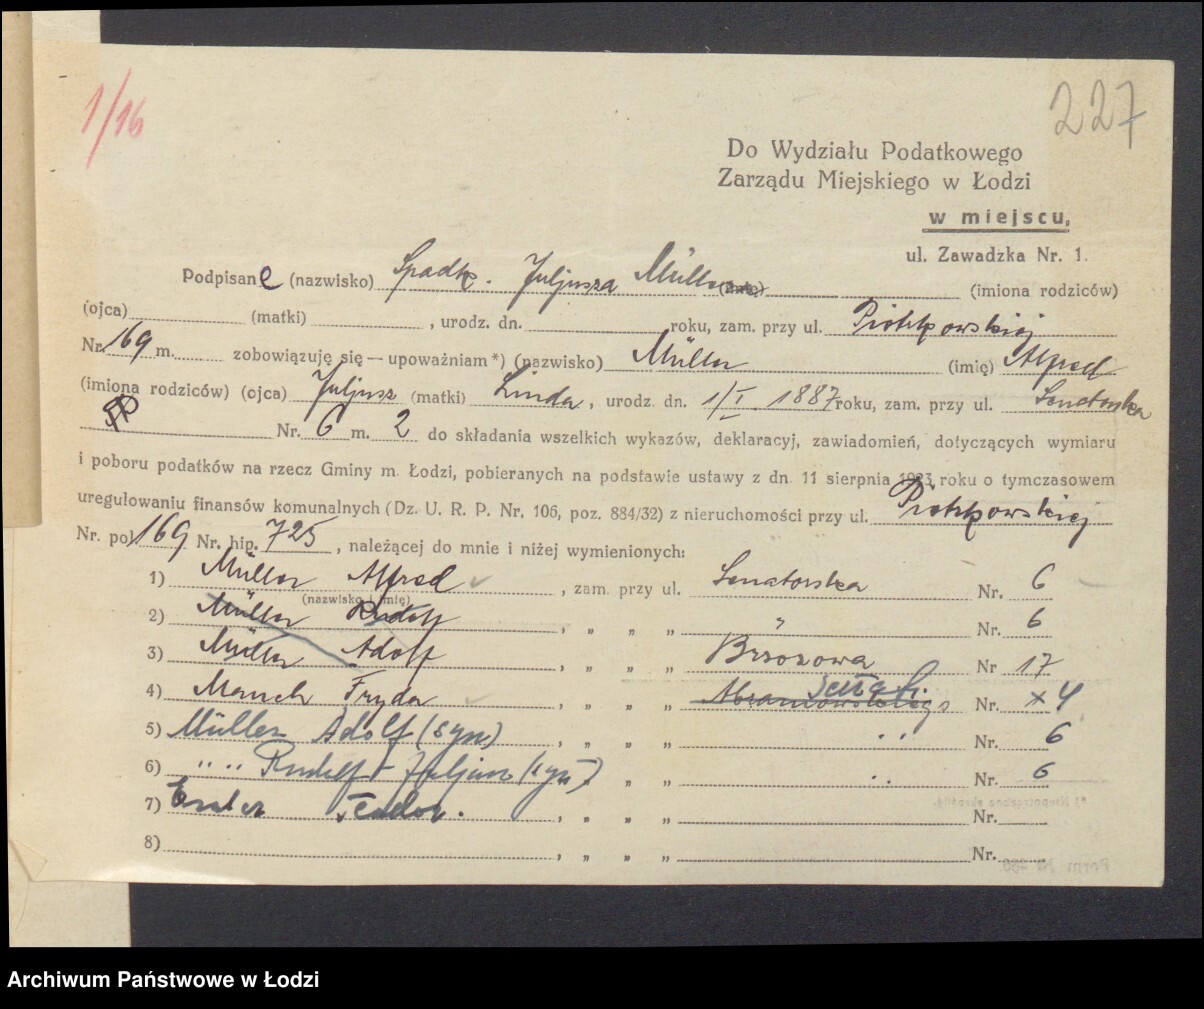 1/16
227
Do Wydziału Podatkowego
Zarządu Miejskiego w Łodzi
w miejscu,
ul. Zawadzka Nr. 1.
Podpisane (nazwisko) Spadk. Juljusza Müllera (imię) (imiona rodziców)
(ojca) (matki) , urodz. dn. roku, zam. przy ul. Piotrkowskiej
Nr. 169 m. zobowiązuję się — upoważniam *) (nazwisko) Müller (imię) Alfred
(imiona rodziców) (ojca) Juljusz (matki) Linda , urodz. dn. 1/I. 1887 roku, zam. przy ul. Senatorska
Nr. 6 m. 2 do składania wszelkich wykazów, deklaracyj, zawiadomień, dotyczących wymiaru
i poboru podatków na rzecz Gminy m. Łodzi, pobieranych na podstawie ustawy z dn. 11 sierpnia 1923 roku o tymczasowem
uregulowaniu finansów komunalnych (Dz. U. R. P. Nr. 106, poz. 884/32) z nieruchomości przy ul. Piotrkowskiej
Nr. pol 169 Nr. hip. 725 , należącej do mnie i niżej wymienionych:
1) Müller Alfred , zam. przy ul. Senatorska Nr. 6
(nazwisko i imię)
2) Müller Rudolf , „ „ „ " Nr. 6
3) Müller Adolf , „ „ „ Brzozowa Nr 17
4) Manch Fryda , „ „ „ Nr. 4
5) Müller Adolf (syn) , „ „ „ " Nr. 6
6) " " Rudolf Juljusz (syn) „ „ " Nr. 6
7) , „ „ „ Nr.
8) , „ „ „ Nr.
*) Niepotrzebne skreślić.
Form. Nr 460
Archiwum Państwowe w Łodzi